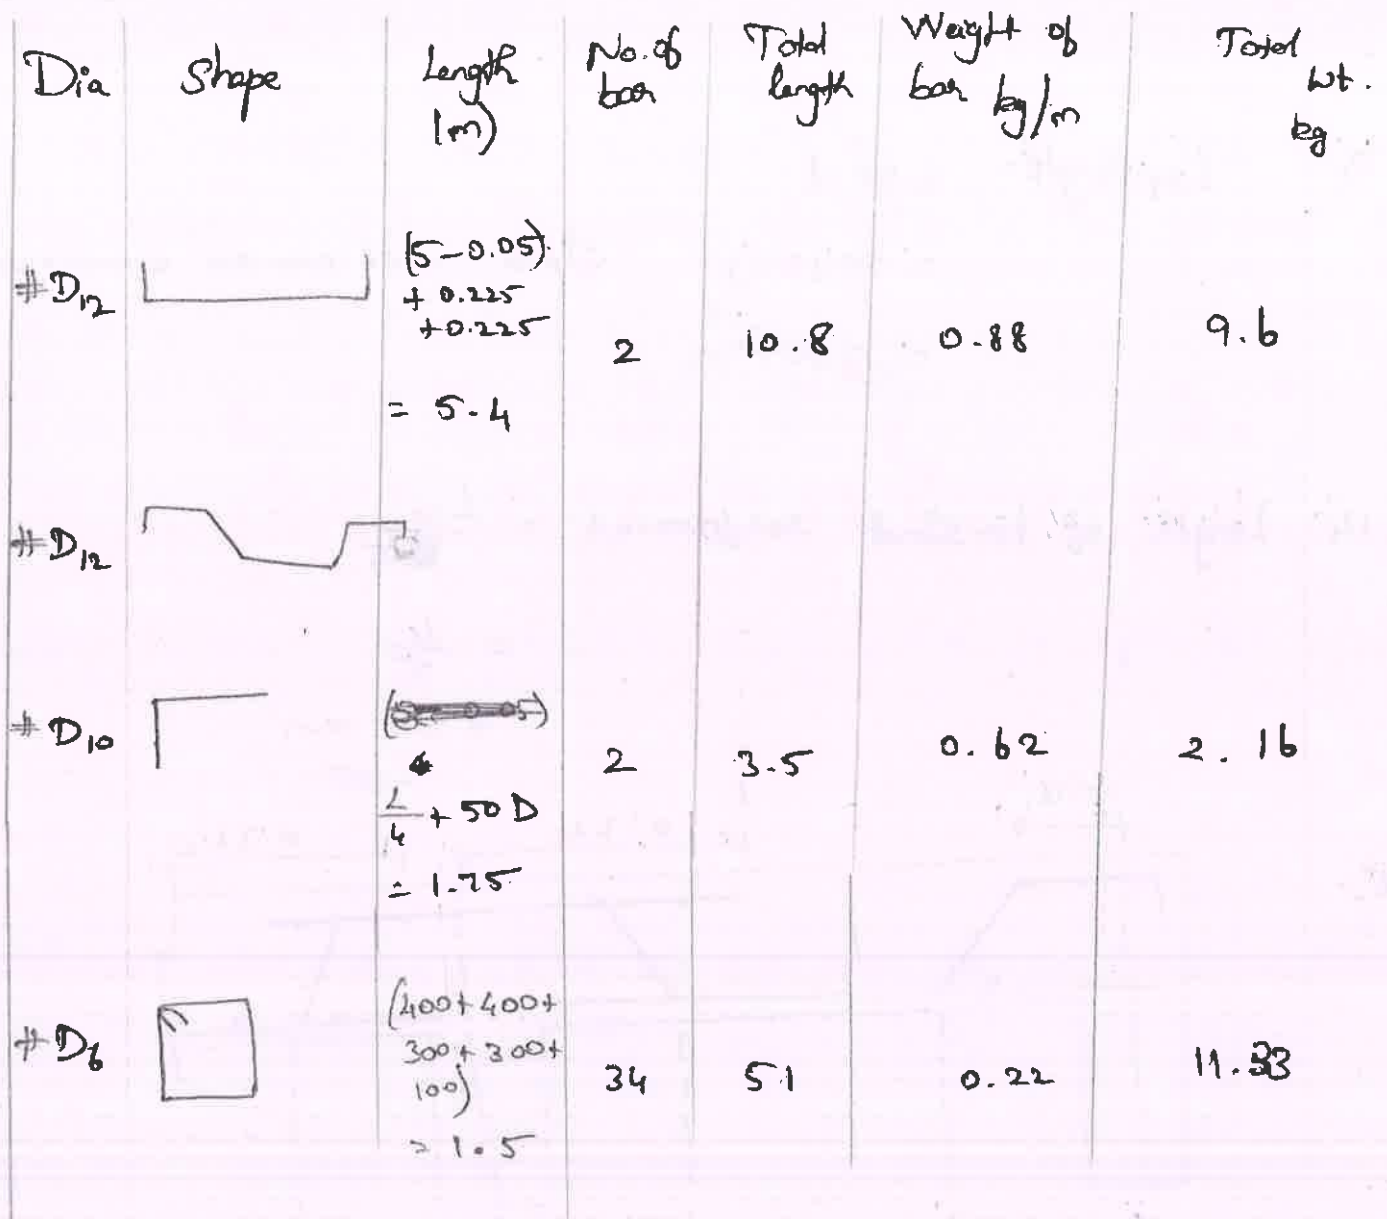 Dia Shape Length (m) No. of bar Total length Weight of bar kg/m Total wt. kg
#D12 (5-0.05) + 0.225 + 0.225 = 5.4 2 10.8 0.88 9.6
#D12
#D10 L/4 + 50 D = 1.75 2 3.5 0.62 2.16
#D6 (400+400+ 300+300+ 100) = 1.5 34 51 0.22 11.33